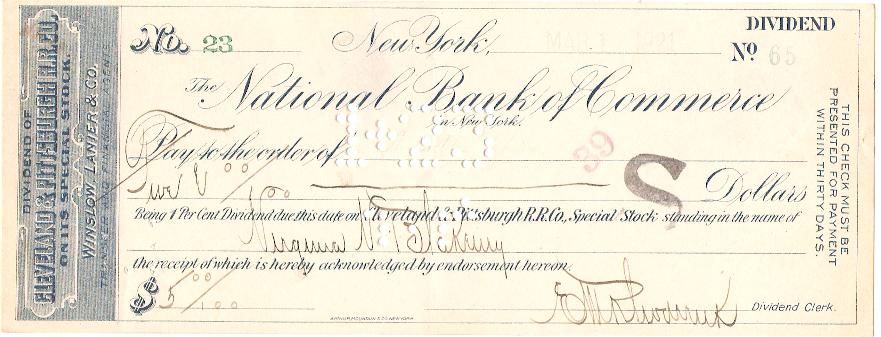 DIVIDEND OF
CLEVELAND & PITTSBURGH R.R. CO.
ON ITS SPECIAL STOCK.
WINSLOW, LANIER & CO.
TRANSFER AND FINANCIAL AGENTS
No. 23 New York, MAR 1 1921 DIVIDEND
No 65
The National Bank of Commerce
in New York.
Pay to the order of
39
Five & 00/100 S Dollars
Being 1 Per Cent Dividend due this date on Cleveland & Pittsburgh R.R. Co, Special Stock standing in the name of
Virginia
the receipt of which is hereby acknowledged by endorsement hereon.
$ 5 00/100
Dividend Clerk.
THIS CHECK MUST BE
PRESENTED FOR PAYMENT
WITHIN THIRTY DAYS.